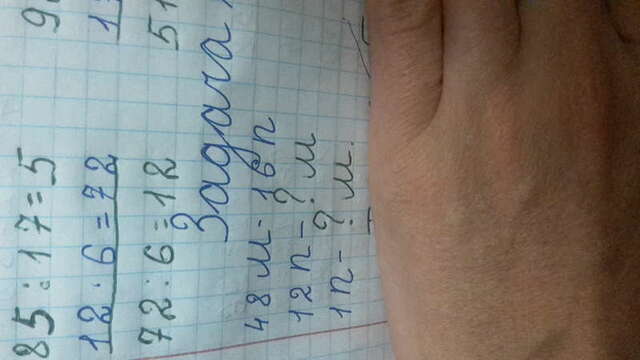 85 : 17 = 5
12 · 6 = 72
72 : 6 = 12
9
1
51
Задача
48 м - 16 п
12 п - ? м
1 п - ? м.